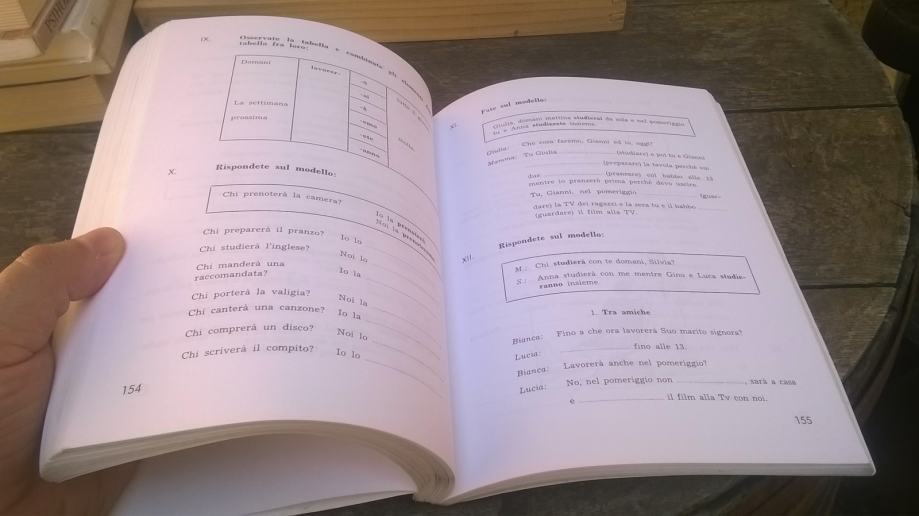 PSIHOL
IX. Osservate la tabella e combinate gli elementi
tabella fra loro:
Domani
lavorer-
-ò
-ai
-à
-emo
-ete
-anno
La settimana
prossima
X. Rispondete sul modello:
Chi prenoterà la camera?
Io la prenoterò
Noi la prenoteremo
Chi preparerà il pranzo? Io lo
Chi studierà l'inglese? Noi lo
Chi manderà una
raccomandata? Io la
Chi porterà la valigia? Noi la
Chi canterà una canzone? Io la
Chi comprerà un disco? Noi lo
Chi scriverà il compito? Io lo
154
XI. Fate sul modello:
Giulia, domani mattina studierai da sola e nel pomeriggio
tu e Anna studierete insieme.
Giulia: Che cosa faremo, Gianni ed io, oggi?
Mamma: Tu Giulia (studiare) e poi tu e Gianni
(preparare) la tavola perché voi
due (pranzare) col babbo alle 13
mentre io pranzerò prima perché devo uscire.
Tu, Gianni, nel pomeriggio (guar-
dare) la TV dei ragazzi e la sera tu e il babbo
(guardare) il film alla TV.
XII. Rispondete sul modello:
M.: Chi studierà con te domani, Silvia?
S.: Anna studierà con me mentre Gino e Luca studie-
ranno insieme.
1. Tra amiche
Bianca: Fino a che ora lavorerà Suo marito signora?
Lucia: fino alle 13.
Bianca: Lavorerà anche nel pomeriggio?
Lucia: No, nel pomeriggio non , sarà a casa
e il film alla Tv con noi.
155